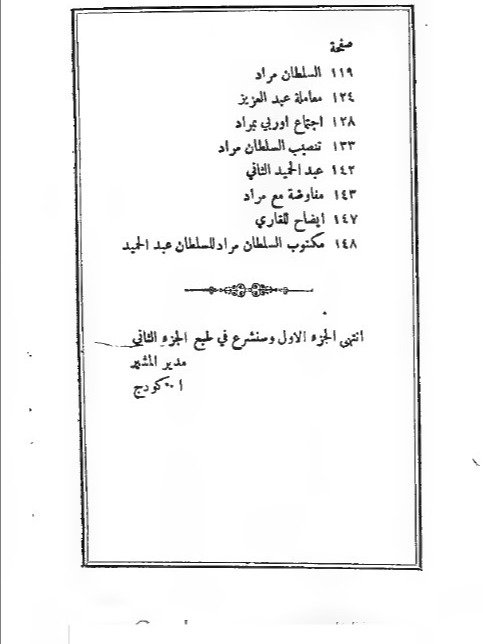 صفحة
١١٩ السلطان مراد
١٢٤ معاملة عبد العزيز
١٢٨ اجتماع اوربي بمراد
١٣٣ تنصيب السلطان مراد
١٤٢ عبد الحميد الثاني
١٤٣ مفاوضة مع مراد
١٤٧ ايضاح للقاري
١٤٨ مكتوب السلطان مراد للسلطان عبد الحميد
انتهى الجزء الاول وسنشرع في طبع الجزء الثاني
مدير المشير
ا · كورج